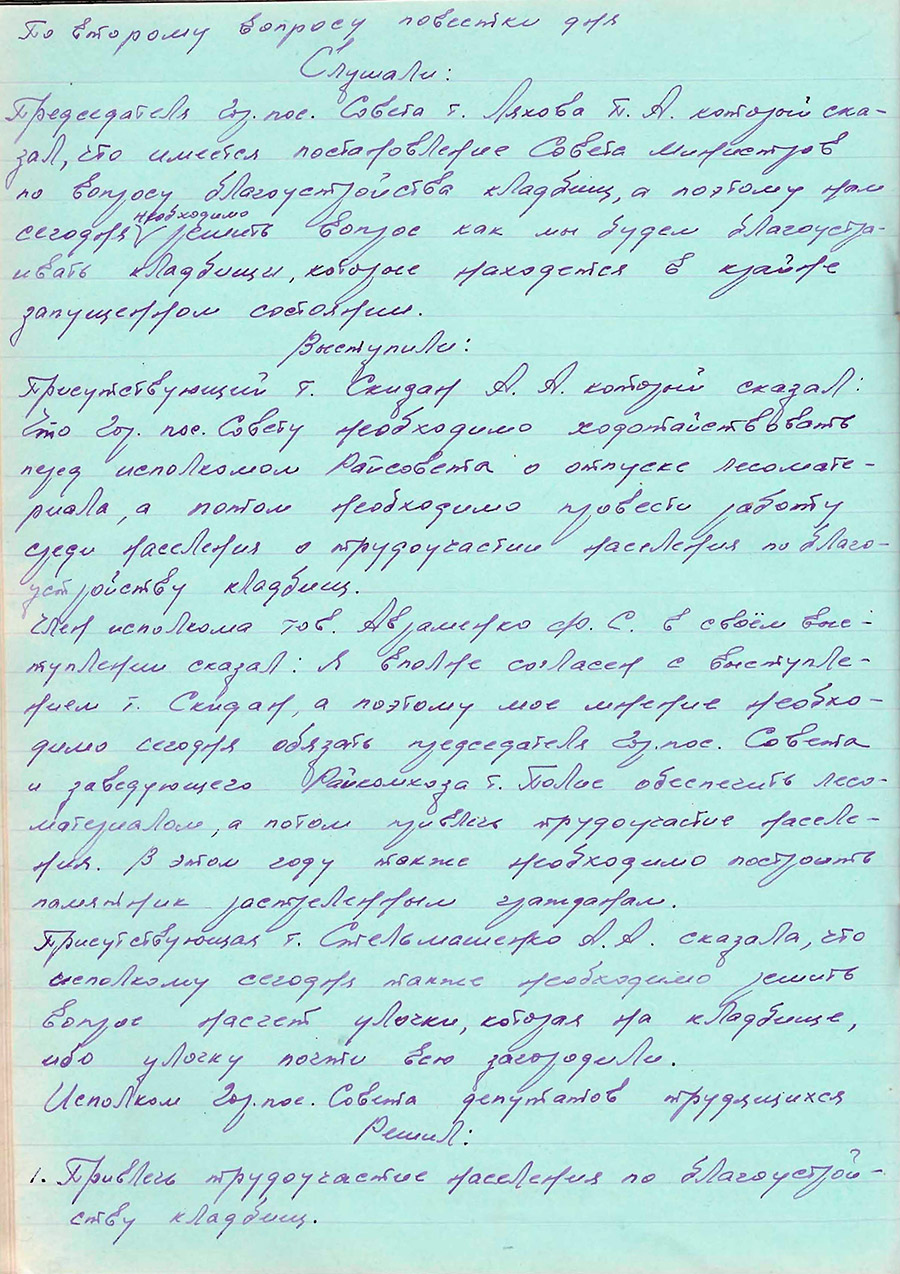 По второму вопросу повестки дня
Слушали:
Председателя гор.пос. Совета т. Ляхова П. А. который ска-
зал, что имеется постановление Совета министров
по вопросу благоустройства кладбищ, а поэтому нам
сегодня необходимо решить вопрос как мы будем благоустра-
ивать кладбищи, которые находется в крайне
запущенном состоянии.
Выступили:
Присутствующий т. Скидан А. А. который сказал:
Что гор. пос. Совету необходимо ходотайствовать
перед исполкомом Райсовета о отпуске лесомате-
риала, а потом необходимо провести работу
среди населения о трудоучастии населения по благо-
устройству кладбищ.
Член исполкома тов. Авраменко Ф. С. в своём выс-
туплении сказал: Я вполне согласен с выступле-
нием т. Скидан, а поэтому мое мнение необхо-
димо сегодня обязать председателя гор.пос. Совета
и заведующего Райкомхоза т. Полис обеспечить лесо-
материалом, а потом привлечь трудоучастие населе-
ния. В этом году также необходимо построить
памятник растреленным гражданам.
Присутствующая т. Стельмашенко А. А. сказала, что
исполкому сегодня также необходимо решить
вопрос насчет улочки, которая на кладбище,
ибо улочку почти всю загородили.
Исполком гор.пос. Совета депутатов трудящихся
Решил:
1. Привлечь трудоучастие населения по благоустрой-
ству кладбищ.